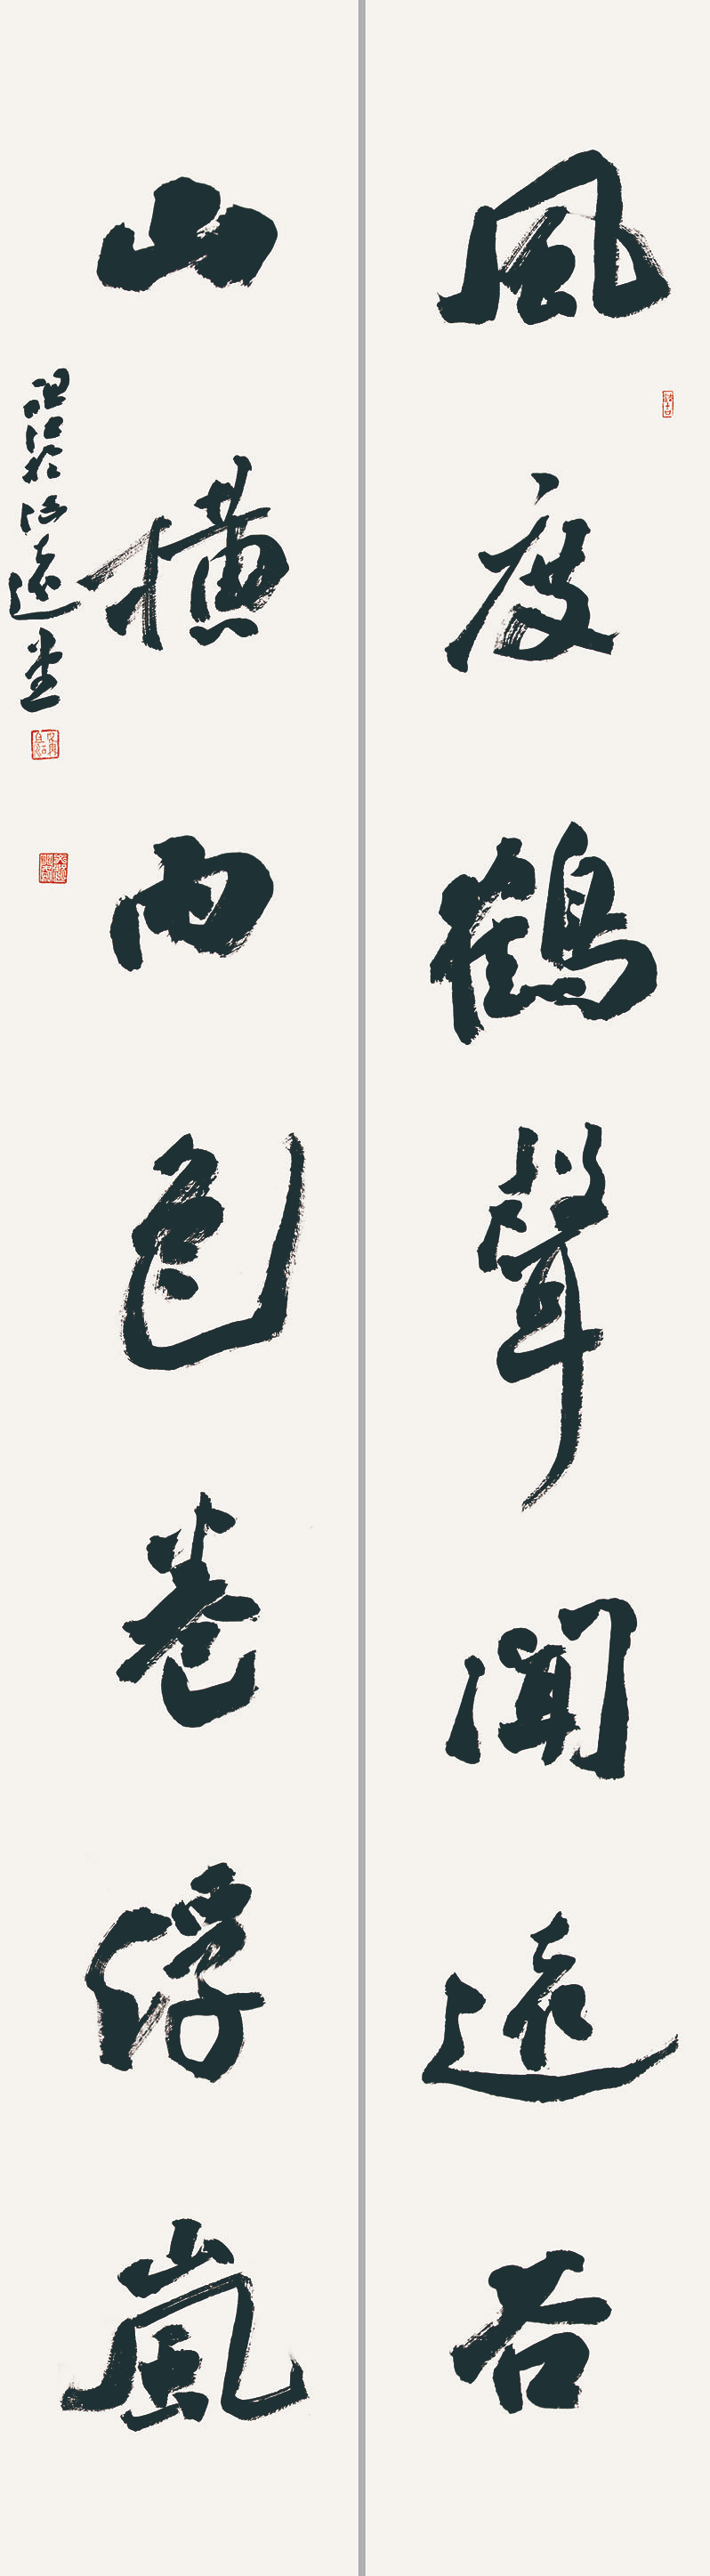 風度鶴聲聞遠谷
山橫雨色卷浮嵐
於遠堂